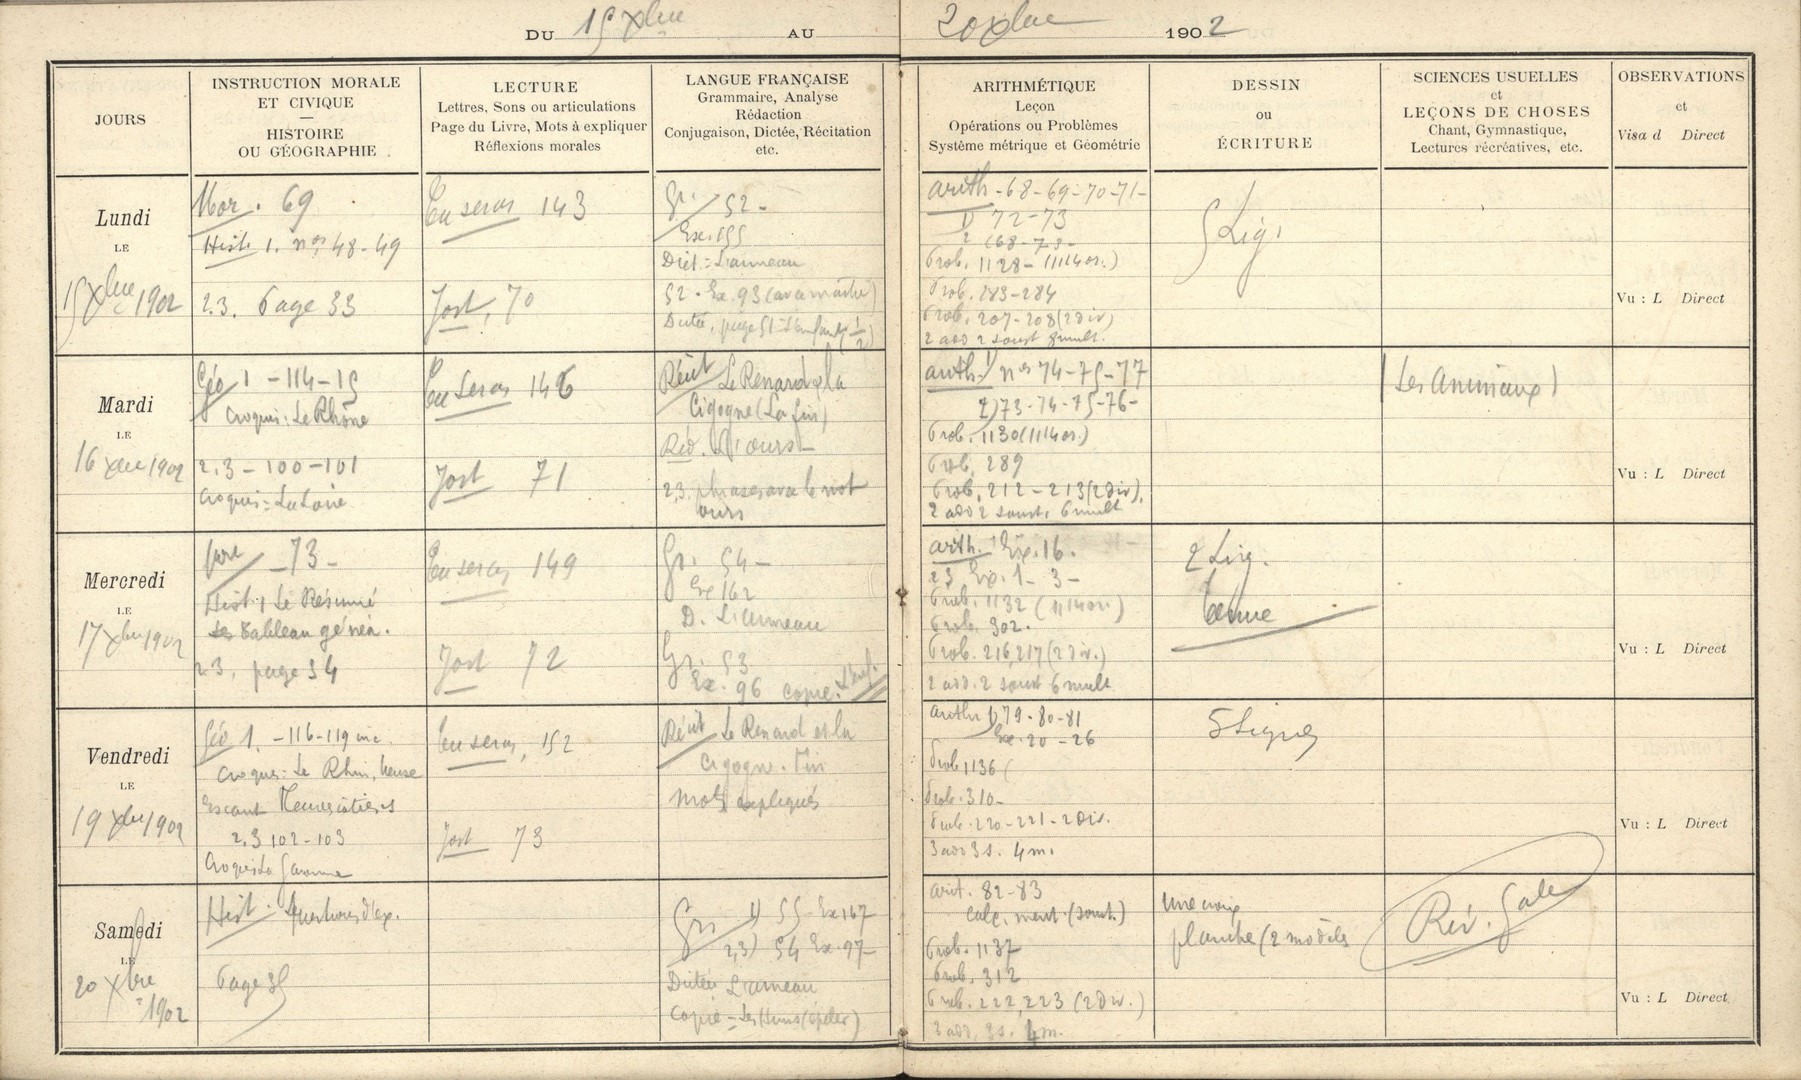 DU 15 Xbre AU 20 Xbre 1902
JOURS
INSTRUCTION MORALE
ET CIVIQUE
—
HISTOIRE
OU GÉOGRAPHIE
LECTURE
Lettres, Sons ou articulations
Page du Livre, Mots à expliquer
Réflexions morales
LANGUE FRANÇAISE
Grammaire, Analyse
Rédaction
Conjugaison, Dictée, Récitation
etc.
ARITHMÉTIQUE
Leçon
Opérations ou Problèmes
Système métrique et Géométrie
DESSIN
ou
ÉCRITURE
SCIENCES USUELLES
et
LEÇONS DE CHOSES
Chant, Gymnastique,
Lectures récréatives, etc.
OBSERVATIONS
et
Visa d Direct
Lundi
LE
15 Xbre 1902
Mor. 69
Hist. 1. nos 48-49
2.3. Page 33
Tu seras 143
Jost, 70
Gr. 52-
Ex. 155
Dict = L'anneau
52 - Ex. 93
Dictée, page 51
arith - 68-69-70-71-
1) 72-73
2 (68-73-
Prob. 1128- (1114 or.)
Prob. 283-284
Prob. 207-208 (2 div)
2 add 2 soust 8 mult.
5 Lig.
Vu : L Direct
Mardi
LE
16 Xbre 1902
Géo 1 - 114-15
Croquis: Le Rhône
2.3 - 100-101
Croquis = La Loire
Tu seras 146
Jost 71
Récit Le Renard et la
Cigogne (La fin)
Réd. L'ours
2,3. phrases avec le mot
ours
arith 1) nos 74-75-77
2) 73-74-75-76-
Prob. 1130 (1114 or.)
Prob. 289
Prob. 212-213 (2 div).
2 add 2 soust. 6 mult
(Les Animaux)
Vu : L Direct
Mercredi
LE
17 Xbre 1902
73-
Hist. 1 Le Résumé
Les Tableau généa.
2.3. page 34
Tu seras 149
Jost 72
Gr. 54-
Ex 162
D. L'anneau
Gr. 53
Ex. 96 copie.
arith. 1 Ex. 16.
2 3 Ex. 1-3-
Prob. 1132 (1114 or.)
Prob. 302.
Prob. 216,217 (2 div.)
2 add. 2 soust 6 mult
2 Lig.
Vu : L Direct
Vendredi
LE
19 Xbre 1902
Géo 1. -116-119 inc.
Croquis: Le Rhin, Meuse
Escaut Fleuves côtiers
2.3 102-103
Croquis La Garonne
Tu seras, 152
Jost 73
Récit Le Renard et la
cigogne. Fin
mots expliqués
arith 1) 79-80-81
Ex. 20-26
Prob 1136 (
Prob. 310-
Prob. 220-221-2 Div.
3 add 3 s. 4 m.
5 lignes
Vu : L Direct
Samedi
LE
20 Xbre
1902
Hist. Questions d'ex.
Page 35
Gr. 1) 55- Ex 167
2,3) 54 Ex. 97-
Dictée L'anneau
Copie = Les Huns (épeler)
arit. 82-83
calc. ment. (soust.)
Prob. 1137
Prob. 312
Prob. 222,223 (2 div.)
3 add, 3 s. 4 m.
une croix
planche (2 modèles
Rév. Gale
Vu : L Direct